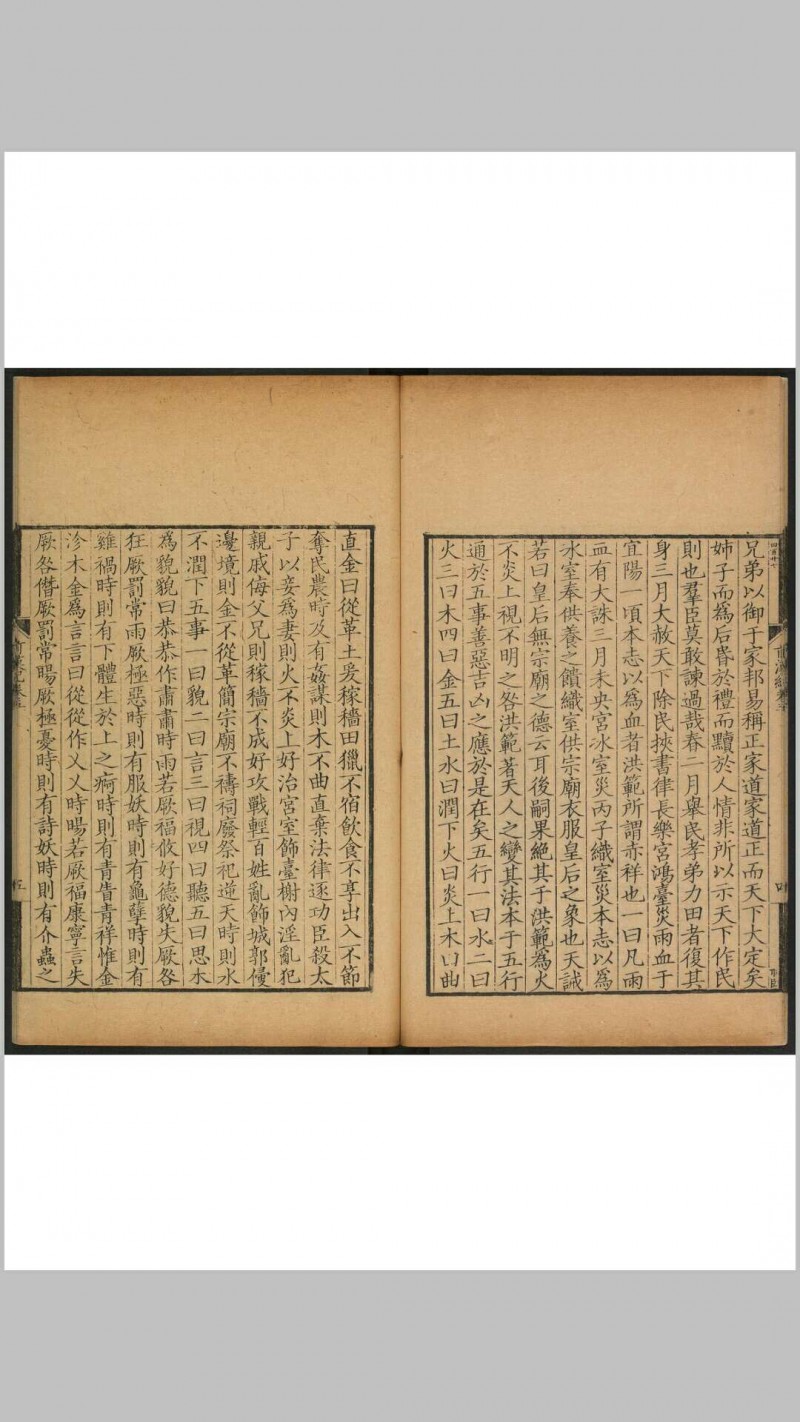 兄弟以御于家邦易稱正家道家道正而天下大定矣
姊子而爲后昬於禮而黷於人情非所以示天下作民
則也羣臣莫敢諫過哉春二月舉民孝弟力田者復其
身三月大赦天下除民挾書律長樂宮鴻臺災雨血于
宜陽一頃本志以爲血者洪範所謂赤祥也一曰凡雨
血有大誅三月未央宮冰室災丙子織室災本志以爲
冰室奉供養之饋織室供宗廟衣服皇后之象也天誡
若曰皇后無宗廟之德云耳後嗣果絶其于洪範爲火
不炎上視不明之咎洪範著天人之變其法本于五行
通於五事善惡吉凶之應於是在矣五行一曰水二曰
火三曰木四曰金五曰土水曰潤下火曰炎上木曰曲
直金曰從革土爰稼穡田獵不宿飲食不享出入不節
奪民農時及有姦謀則木不曲直棄法律逐功臣殺太
子以妾爲妻則火不炎上好治宮室飾臺榭內淫亂犯
親戚侮父兄則稼穡不成好攻戰輕百姓亂飾城郭侵
邊境則金不從革簡宗廟不禱祠廢祭祀逆天時則水
不潤下五事一曰貌二曰言三曰視四曰聽五曰思木
爲貌貌曰恭恭作肅肅時雨若厥福攸好德貌失厥咎
狂厥罰常雨厥極惡時則有服妖時則有龜孽時則有
雞禍時則有下體生於上之痾時則有青眚青祥惟金
沴木金爲言言曰從從作乂乂時暘若厥福康寧言失
厥咎僭厥罰常暘厥極憂時則有詩妖時則有介蟲之